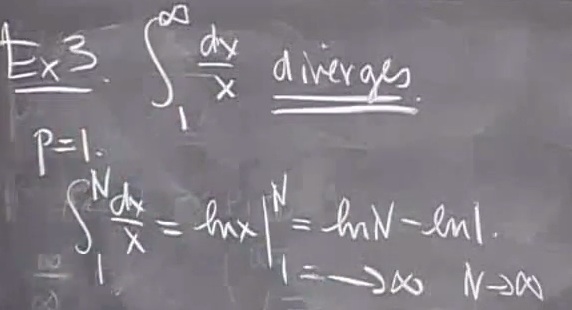 Ex3. ∫₁^∞ dx/x diverges.
p=1.
∫₁^N dx/x = lnx|₁^N = lnN - ln1.
= → ∞ N→∞